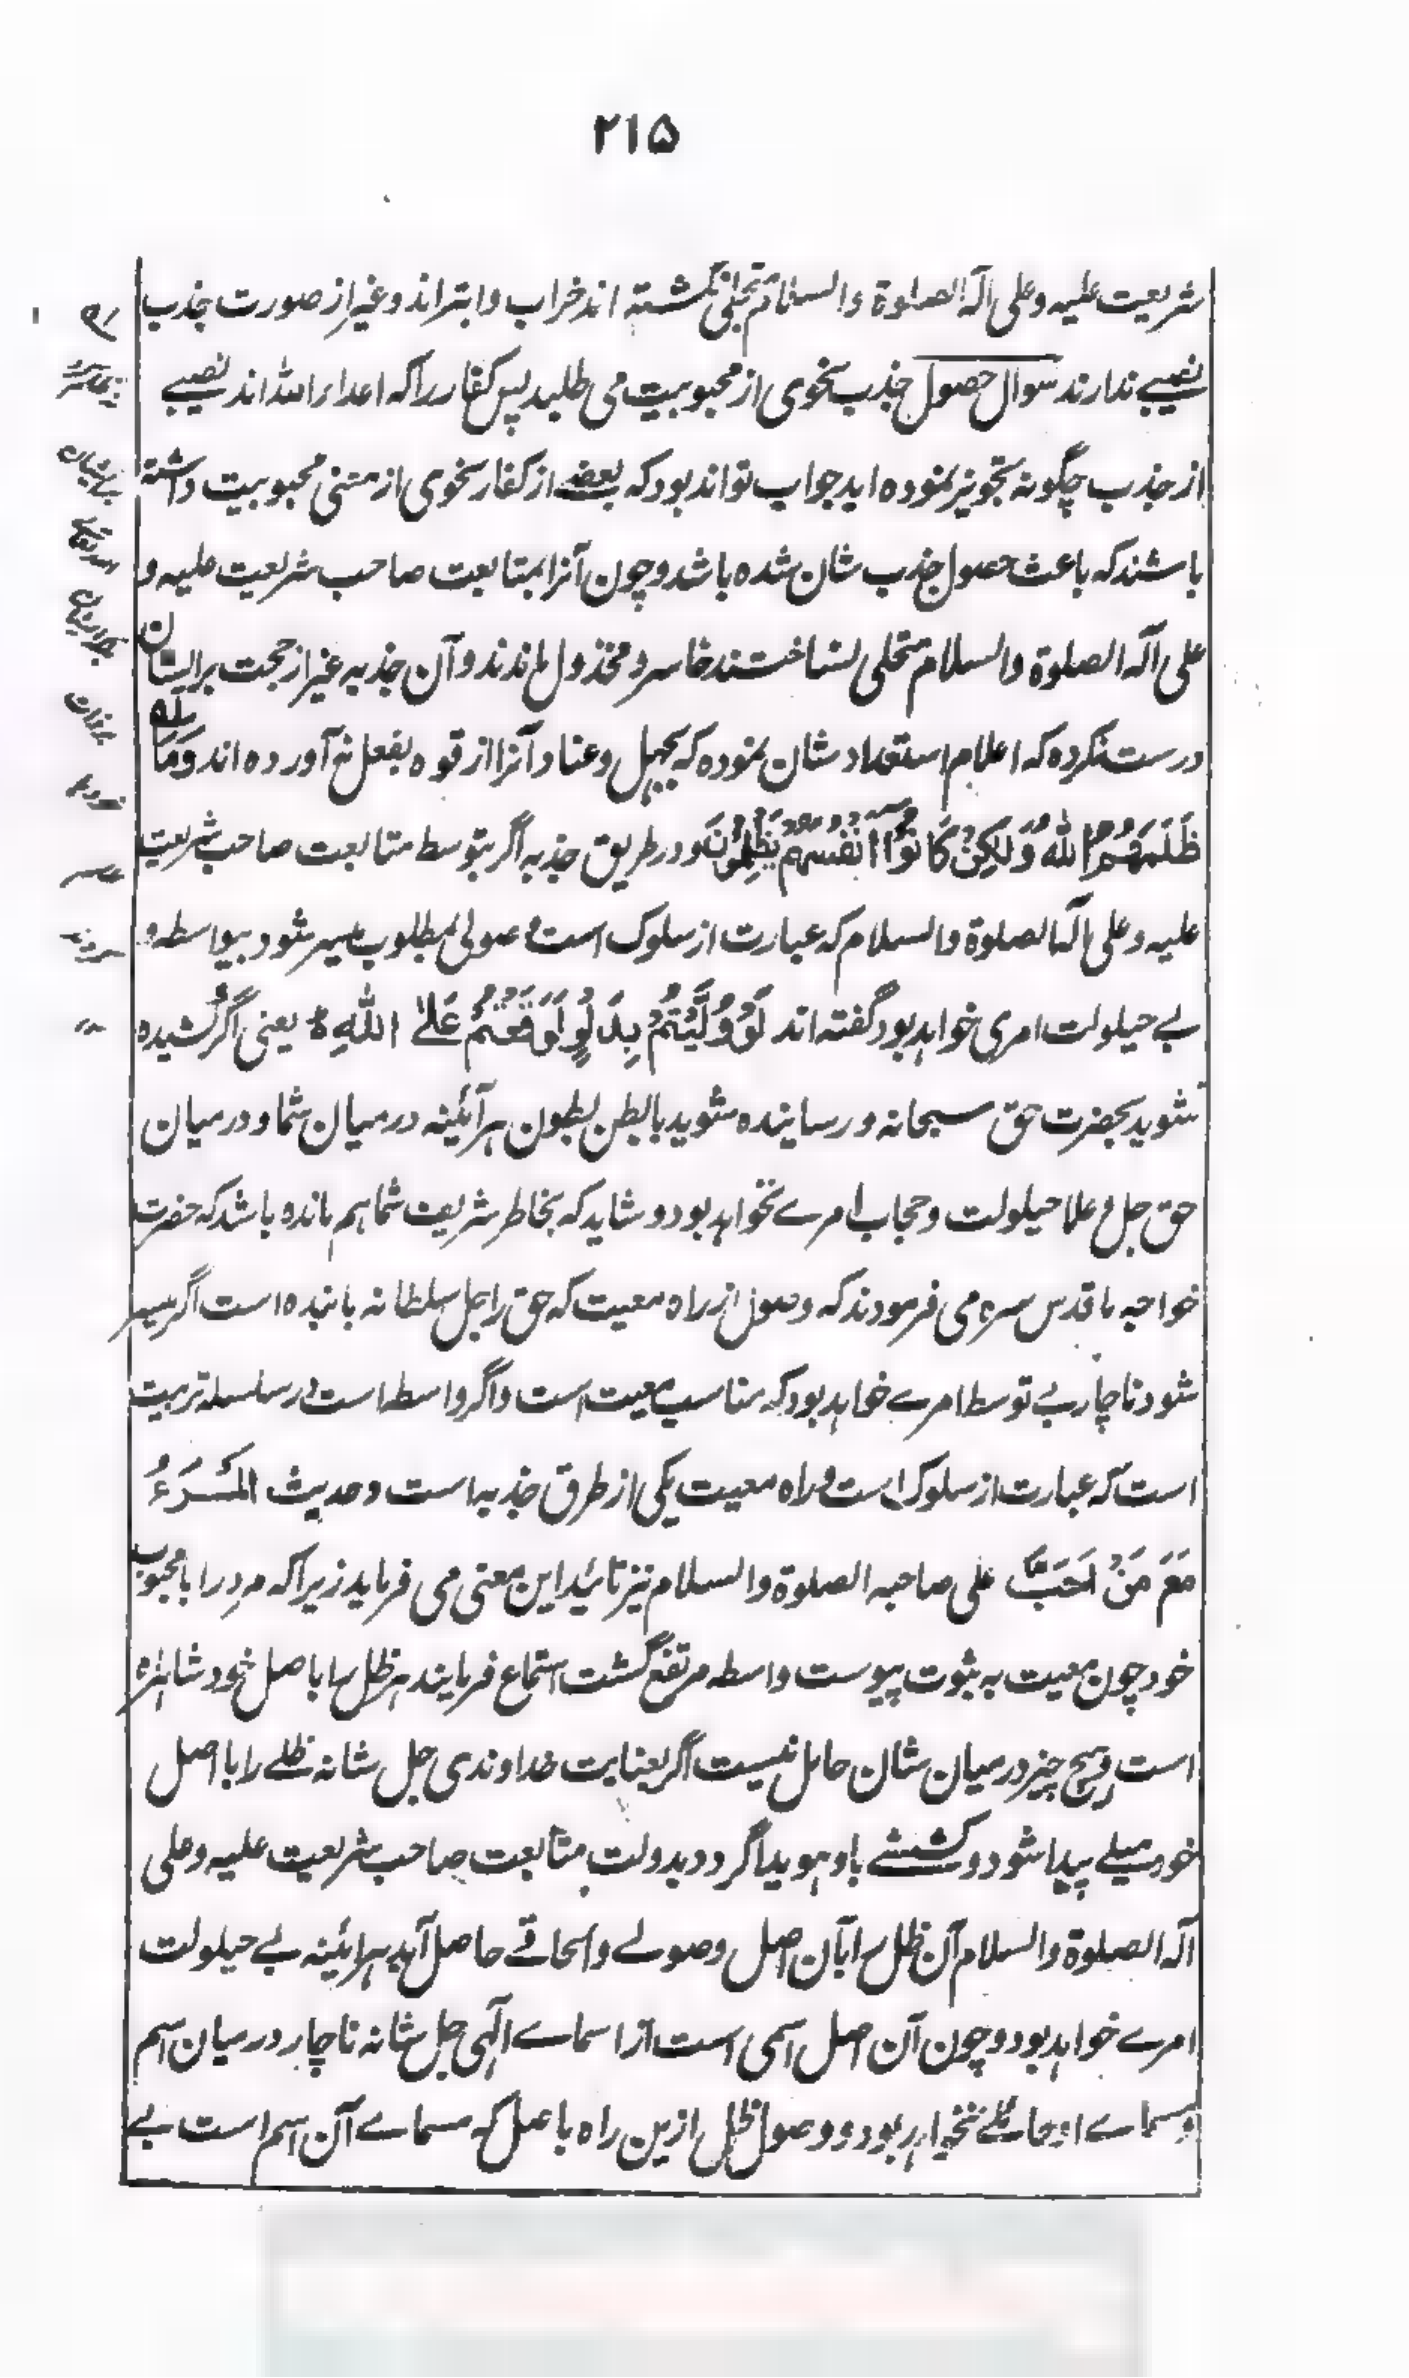 ۲۱۵
شریعت علیه و علی آله الصلوة والسلام متجلی نگشته اند خراب و ابتراند و غیر از صورت جذب
نصیبے ندارند سوال حصول جذب نحوی از محبوبیت می طلبد پس کفار را که اعداء الله اند نصیبے
از جذب چگونه تجویز نموده اید جواب تواند بود که بعضے از کفار نحوی از معنی محبوبیت داشته
باشند که باعث حصول جذب شان شده باشد و چون آنرا بمتابعت صاحب شریعت علیه و
علی آله الصلوة والسلام متحلی نساختند خاسر و مخذول ماندند و آن جذبه غیر از حجت بر ایشان
درست نکرده که اعلام استعداد شان نموده که بجهل و عناد آنرا از قوه بفعل نه آورده اند وَمَا
ظَلَمَهُمُ اللهُ وَلَكِنْ كَانُوْا اَنْفُسَهُمْ يَظْلِمُوْنَ و در طریق جذبه اگر بتوسط متابعت صاحب شریعت
علیه و علی آله الصلوة والسلام که عبارت از سلوک است وصولی بمطلوب میسر شود بیواسطه و
بے حیلولت امری خواهد بود گفته اند لَوْ دُلِّيْتُمْ بِدَلْوٍ لَوَقَعْتُمْ عَلَے اللهِ یعنی اگر کشیده
شوید بحضرت حق سبحانه و رسانیده شوید بابطن بطون هر آئینه درمیان شما و درمیان
حق جل و علا حیلولت و حجاب امرے نخواهد بود و شاید که بخاطر شریف شما هم مانده باشد که حضرت
خواجه ما قدس سره می فرمودند که وصول از راه معیت که حق را جل سلطانه با بنده است اگر میسر
شود ناچار بے توسط امرے خواهد بود که مناسب معیت است و اگر واسطه است در سلسله تربیت
است که عبارت از سلوک است و راه معیت یکی از طرق جذبه است و حدیث الْمَرْءُ
مَعَ مَنْ اَحَبَّ علی صاحبه الصلوة والسلام نیز تائید این معنی می فرماید زیرا که مرد را با محبوب
خود چون معیت به ثبوت پیوست واسطه مرتفع گشت استماع فرمایند هر ظل را با اصل خود شاهراه
است و هیچ چیز درمیان شان حائل نیست اگر بعنایت خداوندی جل شانه ظلے را با اصل
خود میلے پیدا شود و کششے باو هویدا گردد بدولت متابعت صاحب شریعت علیه و علی
آله الصلوة والسلام آن ظل را بآن اصل وصولے و الحاقے حاصل آید هر ائینه بے حیلولت
امرے خواهد بود و چون آن اصل اسمی است از اسماے الهی جل شانه ناچار درمیان اسم
و مسماے او حائلے نخواهد بود و وصول ظل ازین راه با اصل که مسماے آن اسم است بے